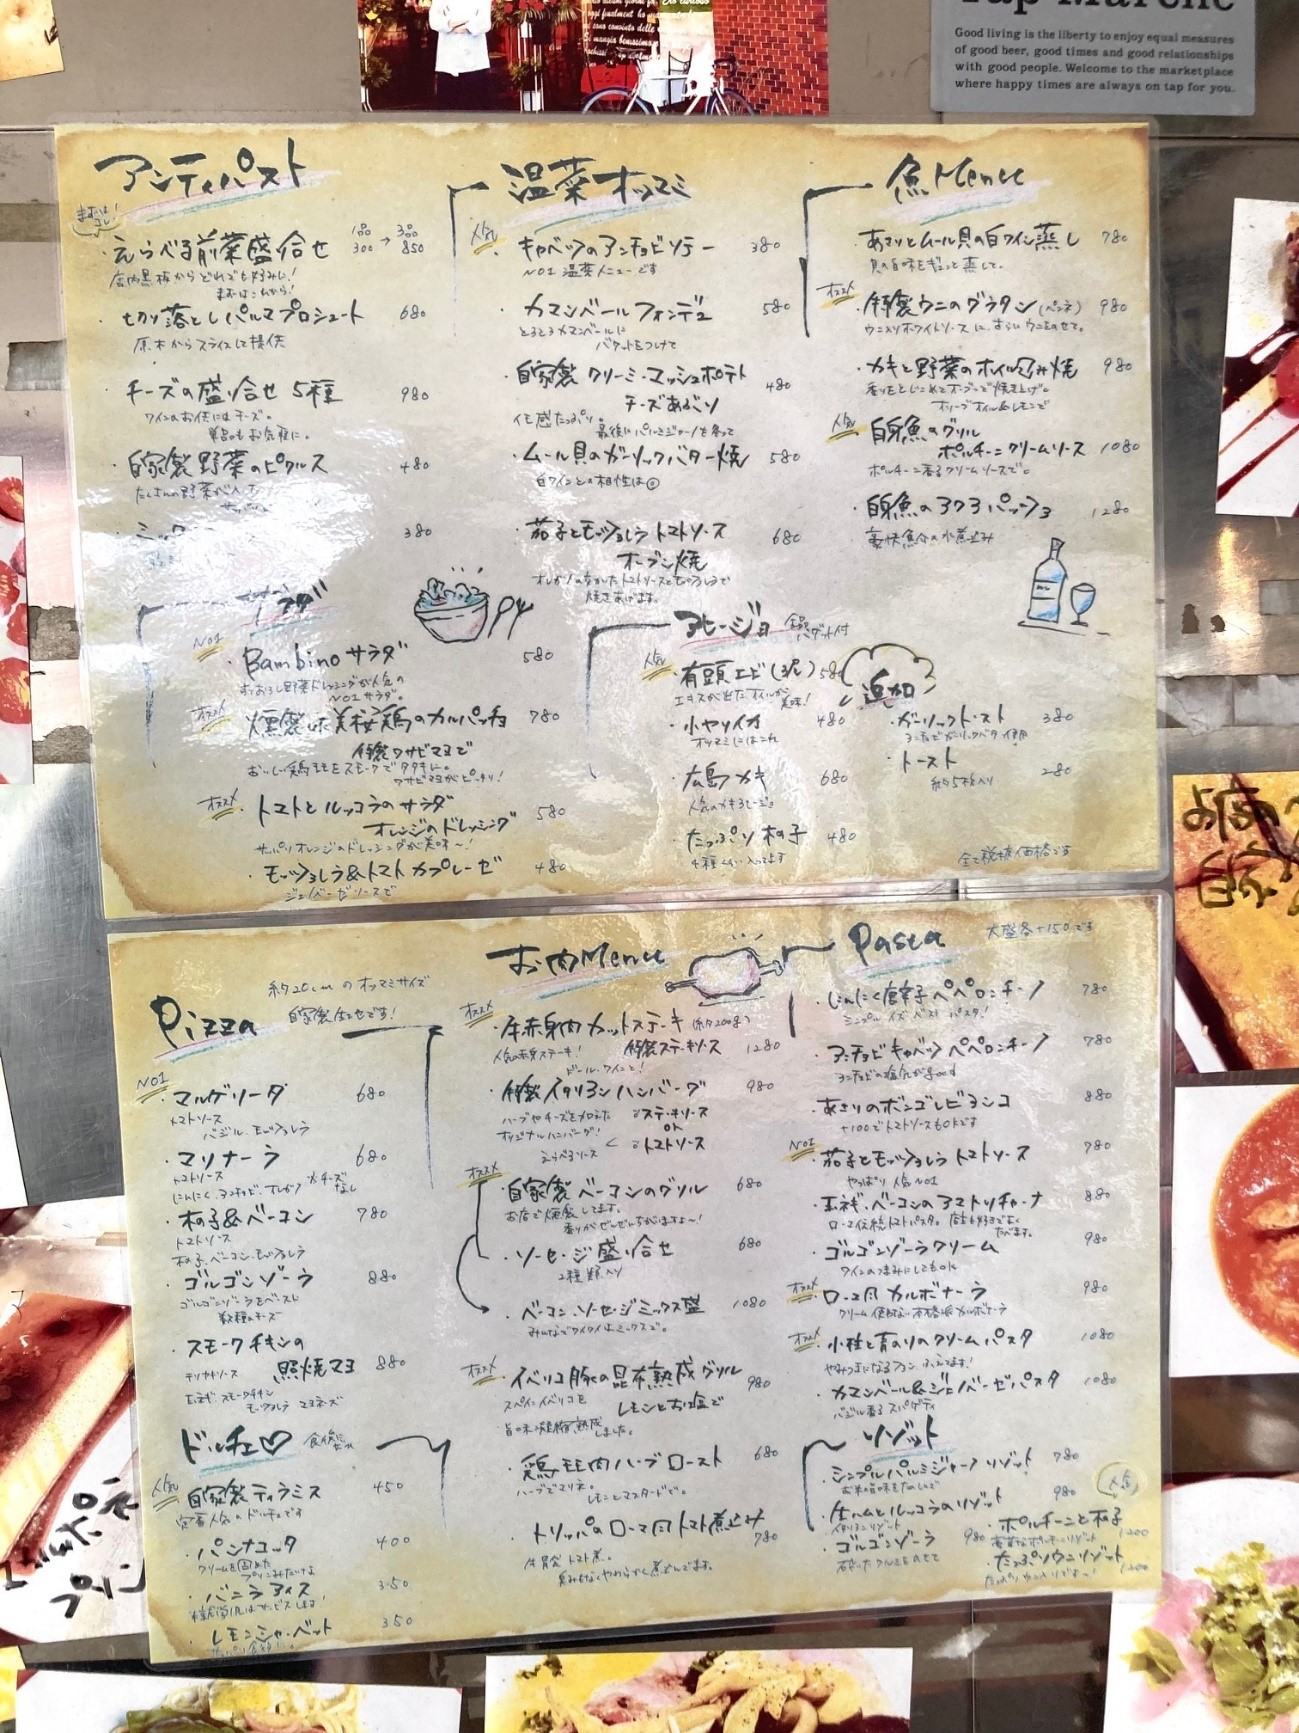 Good living is the liberty to enjoy equal measures
of good beer, good times and good relationships
with good people. Welcome to the marketplace
where happy times are always on tap for you.
アンティパスト
えらべる前菜盛り合せ 1品300 → 3品850
切り落としパルマプロシュート 680
原木からスライスして提供
チーズの盛り合せ 5種 980
ワインのお供にはチーズ。
単品もお気軽に。
自家製野菜のピクルス 480
380
サラダ
NO1
Bambinoサラダ 580
NO1サラダ。
オススメ
燻製 美桜鶏のカルパッチョ 780
特製ワサビマヨで
おいしい鶏モモをスモークしてタタキに。
ワサビマヨがピッタリ!
オススメ
トマトとルッコラのサラダ 580
オレンジのドレッシング
サッパリオレンジのドレッシングが美味〜!
モッツァレラ&トマト カプレーゼ 480
ジェノベーゼソースで
温菜オツマミ
人気
キャベツのアンチョビソテー 380
NO1 温菜メニューです
カマンベールフォンデュ 580
とろとろカマンベールに
バケットをつけて
自家製クリーミーマッシュポテト 480
チーズあぶり
イモ感たっぷり。
ムール貝のガーリックバター焼 580
白ワインとの相性は◎
茄子とモッツァレラ トマトソース 680
オーブン焼
焼きあげます。
アヒージョ 全品バゲット付
人気
有頭エビ(3尾) 580
小ヤリイカ 480
オツマミにはこれ
広島カキ 680
人気のカキアヒージョ
たっぷり木の子 480
4種くらい入ってます
魚Menu
あさりとムール貝の白ワイン蒸し 780
貝の旨味をギュッと蒸して。
オススメ
特製ウニのグラタン(ペンネ) 980
カキと野菜のホイル包み焼 980
オリーブオイル&レモンで
人気
白身魚のグリル
ポルチーニクリームソース 1080
ポルチーニ香るクリームソースで。
白身魚のアクアパッツァ 1280
追加
ガーリックトースト 380
トースト 280
約5枚入り
全て税抜価格です
Pizza
約20cmのオツマミサイズ
自家製生地です!
NO1
マルゲリータ 680
トマトソース
バジル、モッツァレラ
マリナーラ 680
トマトソース
にんにく、アンチョビ、オレガノ ※チーズなし
木の子&ベーコン 780
トマトソース
木の子、ベーコン、モッツァレラ
ゴルゴンゾーラ 880
ゴルゴンゾーラをベースに
数種のチーズ
スモークチキンの
照焼マヨ 880
テリヤキソース
玉ネギ、スモークチキン
モッツァレラ マヨネーズ
ドルチェ♡
人気
自家製ティラミス 450
定番人気のドルチェです
パンナコッタ 400
バニラアイス 350
レモンシャーベット 350
お肉Menu
オススメ
牛赤身肉カットステーキ(約200g)
特製ステーキソース 1280
人気の赤身ステーキ!
特製イタリアンハンバーグ 980
オリジナルハンバーグ!
えらべるソース
ステーキソース
OR
トマトソース
オススメ
自家製ベーコンのグリル 680
お店で燻製してます。
香りがぜんぜんちがいますよ〜!
ソーセージ盛り合せ 680
2種類入り
ベーコン、ソーセージミックス盛 1080
みんなでワイワイはミックスで。
オススメ
イベリコ豚の昆布熟成グリル 980
スペインイベリコを
レモンとお塩で
鶏モモ肉ハーブロースト 680
ハーブでマリネ。
レモンとマスタードで。
トリッパのローマ風トマト煮込み 780
Pasta
大盛各+150です
にんにく唐辛子ペペロンチーノ 780
シンプル イズ ベスト パスタ!
アンチョビキャベツペペロンチーノ 780
アンチョビの塩気がgood
あさりのボンゴレビアンコ 880
+100でトマトソースもOKです
NO1
茄子とモッツァレラ トマトソース 780
やっぱり人気NO1
玉ネギ、ベーコンのアマトリチャーナ 880
ゴルゴンゾーラクリーム 980
ワインのつまみにしてもOK
オススメ
ローマ風カルボナーラ 980
クリーム使わない本格派カルボナーラ
オススメ
小柱と青のりのクリームパスタ 1080
やみつきになるファン、ふえてます!
カマンベール&ジェノベーゼパスタ 1080
バジル香るスパゲティ
リゾット
シンプルパルミジャーノリゾット 780
生ハムとルッコラのリゾット 980
ゴルゴンゾーラ 980
人気
ポルチーニと木の子 1200
たっぷりウニリゾット 1200